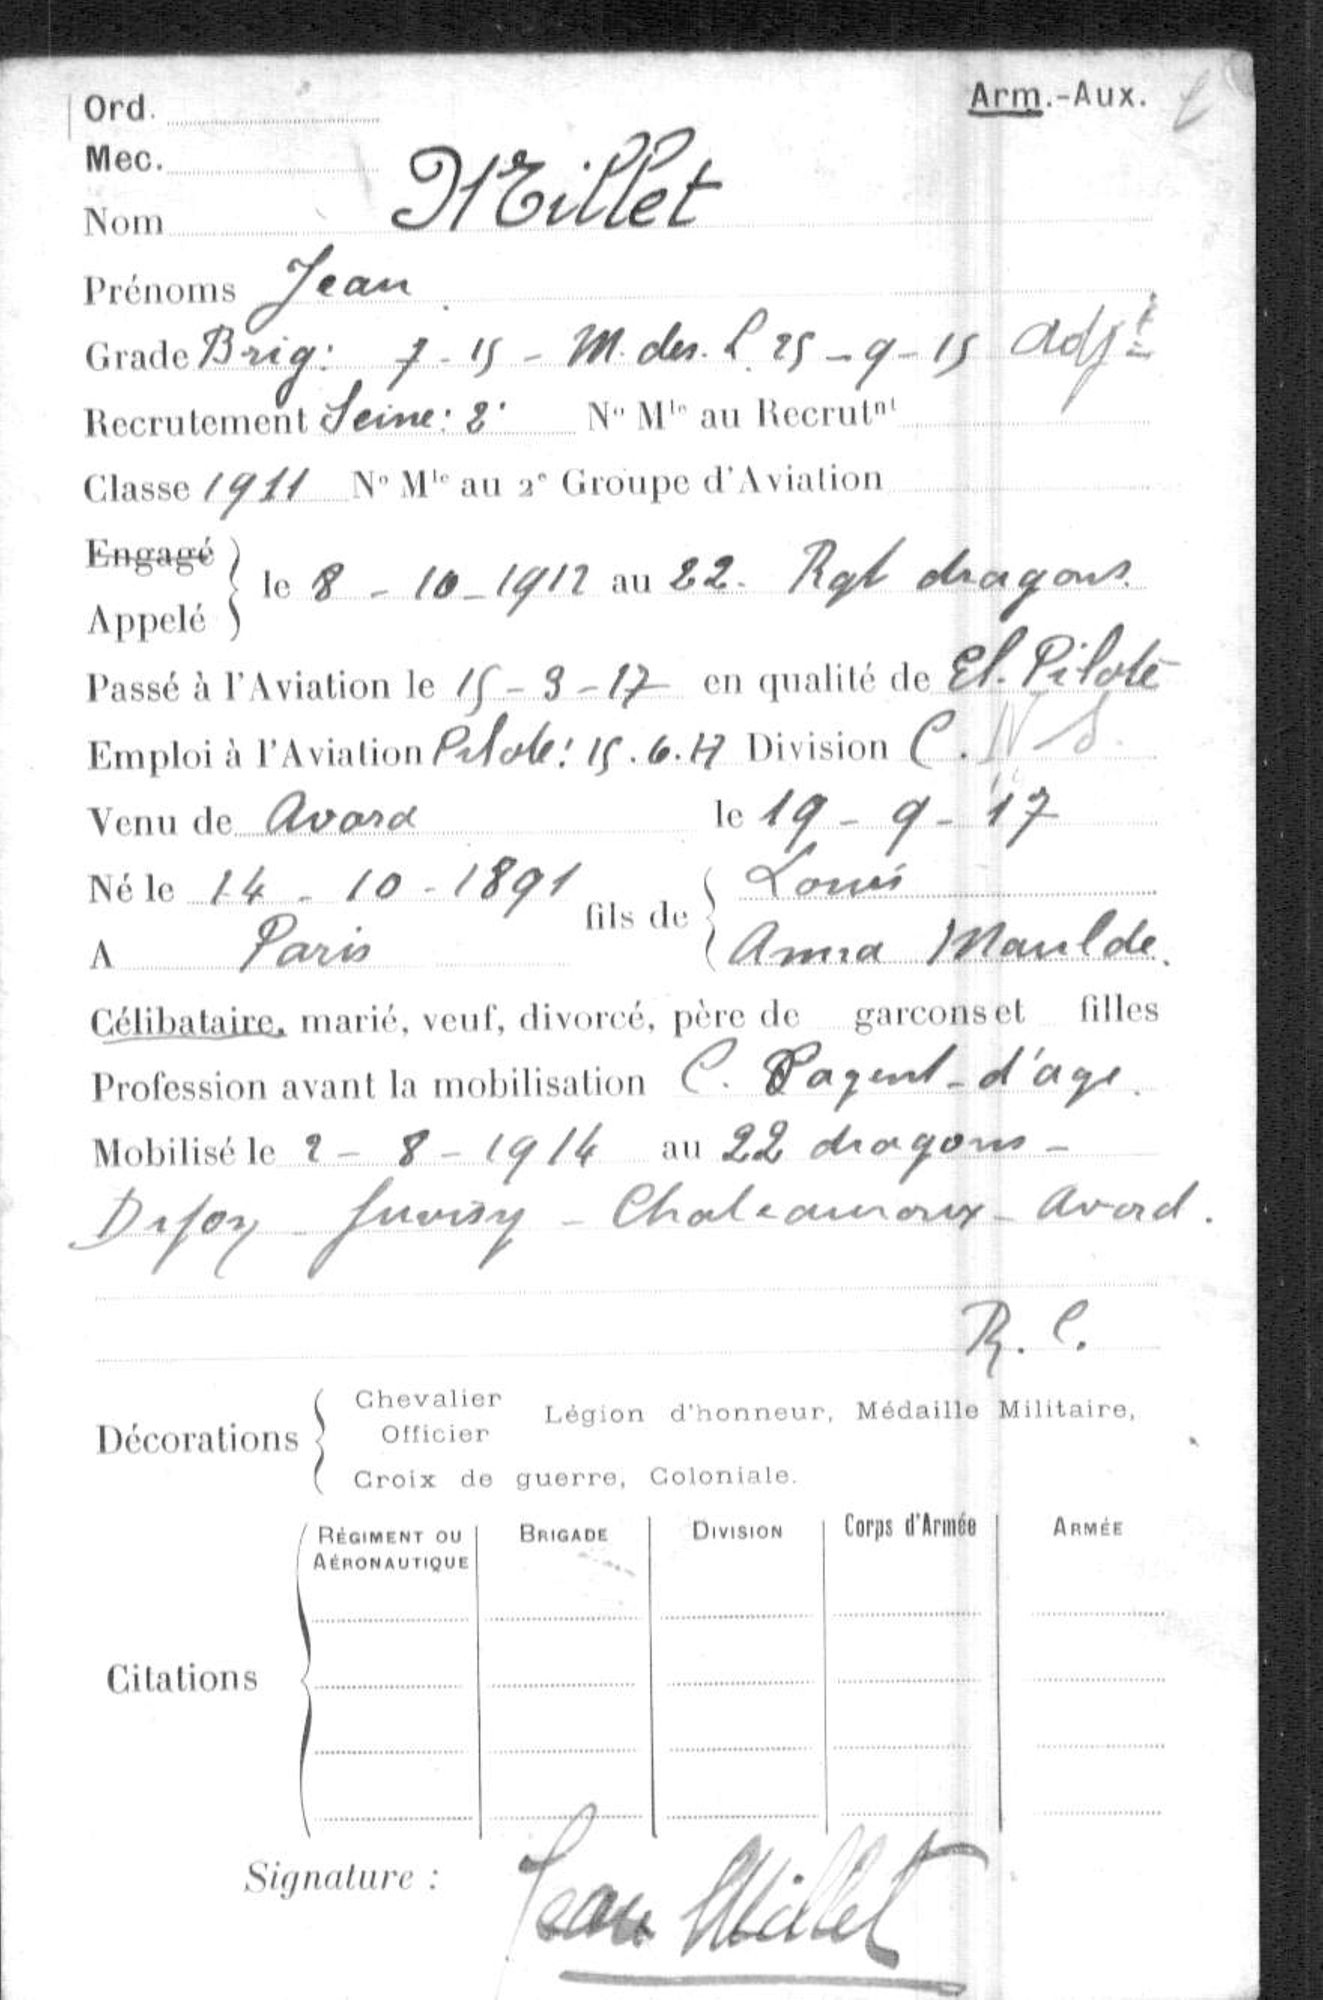 Ord. Arm.-Aux.
Mec.
Nom Millet
Prénoms Jean
Grade Brig: 7-15 - M. des. L. 25-9-15 Adjt
Recrutement Seine: 2e No Mle au Recrutnt
Classe 1911 No Mle au 2e Groupe d'Aviation
Engagé
Appelé le 8-10-1912 au 22. Rgt dragons.
Passé à l'Aviation le 15-3-17 en qualité de El. Pilote
Emploi à l'Aviation Pilote: 15.6.17 Division C.
Venu de Avord le 19-9-17
Né le 14-10-1891 fils de Louis
A Paris Anna Maulde.
Célibataire, marié, veuf, divorcé, père de garcons et filles
Profession avant la mobilisation C.
Mobilisé le 2-8-1914 au 22 dragons -
Dijon - Juvisy - Chateauroux - Avord.
R. C.
Décorations Chevalier Officier Légion d'honneur, Médaille Militaire,
Croix de guerre, Coloniale.
Citations
Régiment ou Aéronautique Brigade Division Corps d'Armée Armée
Signature : Jean Millet